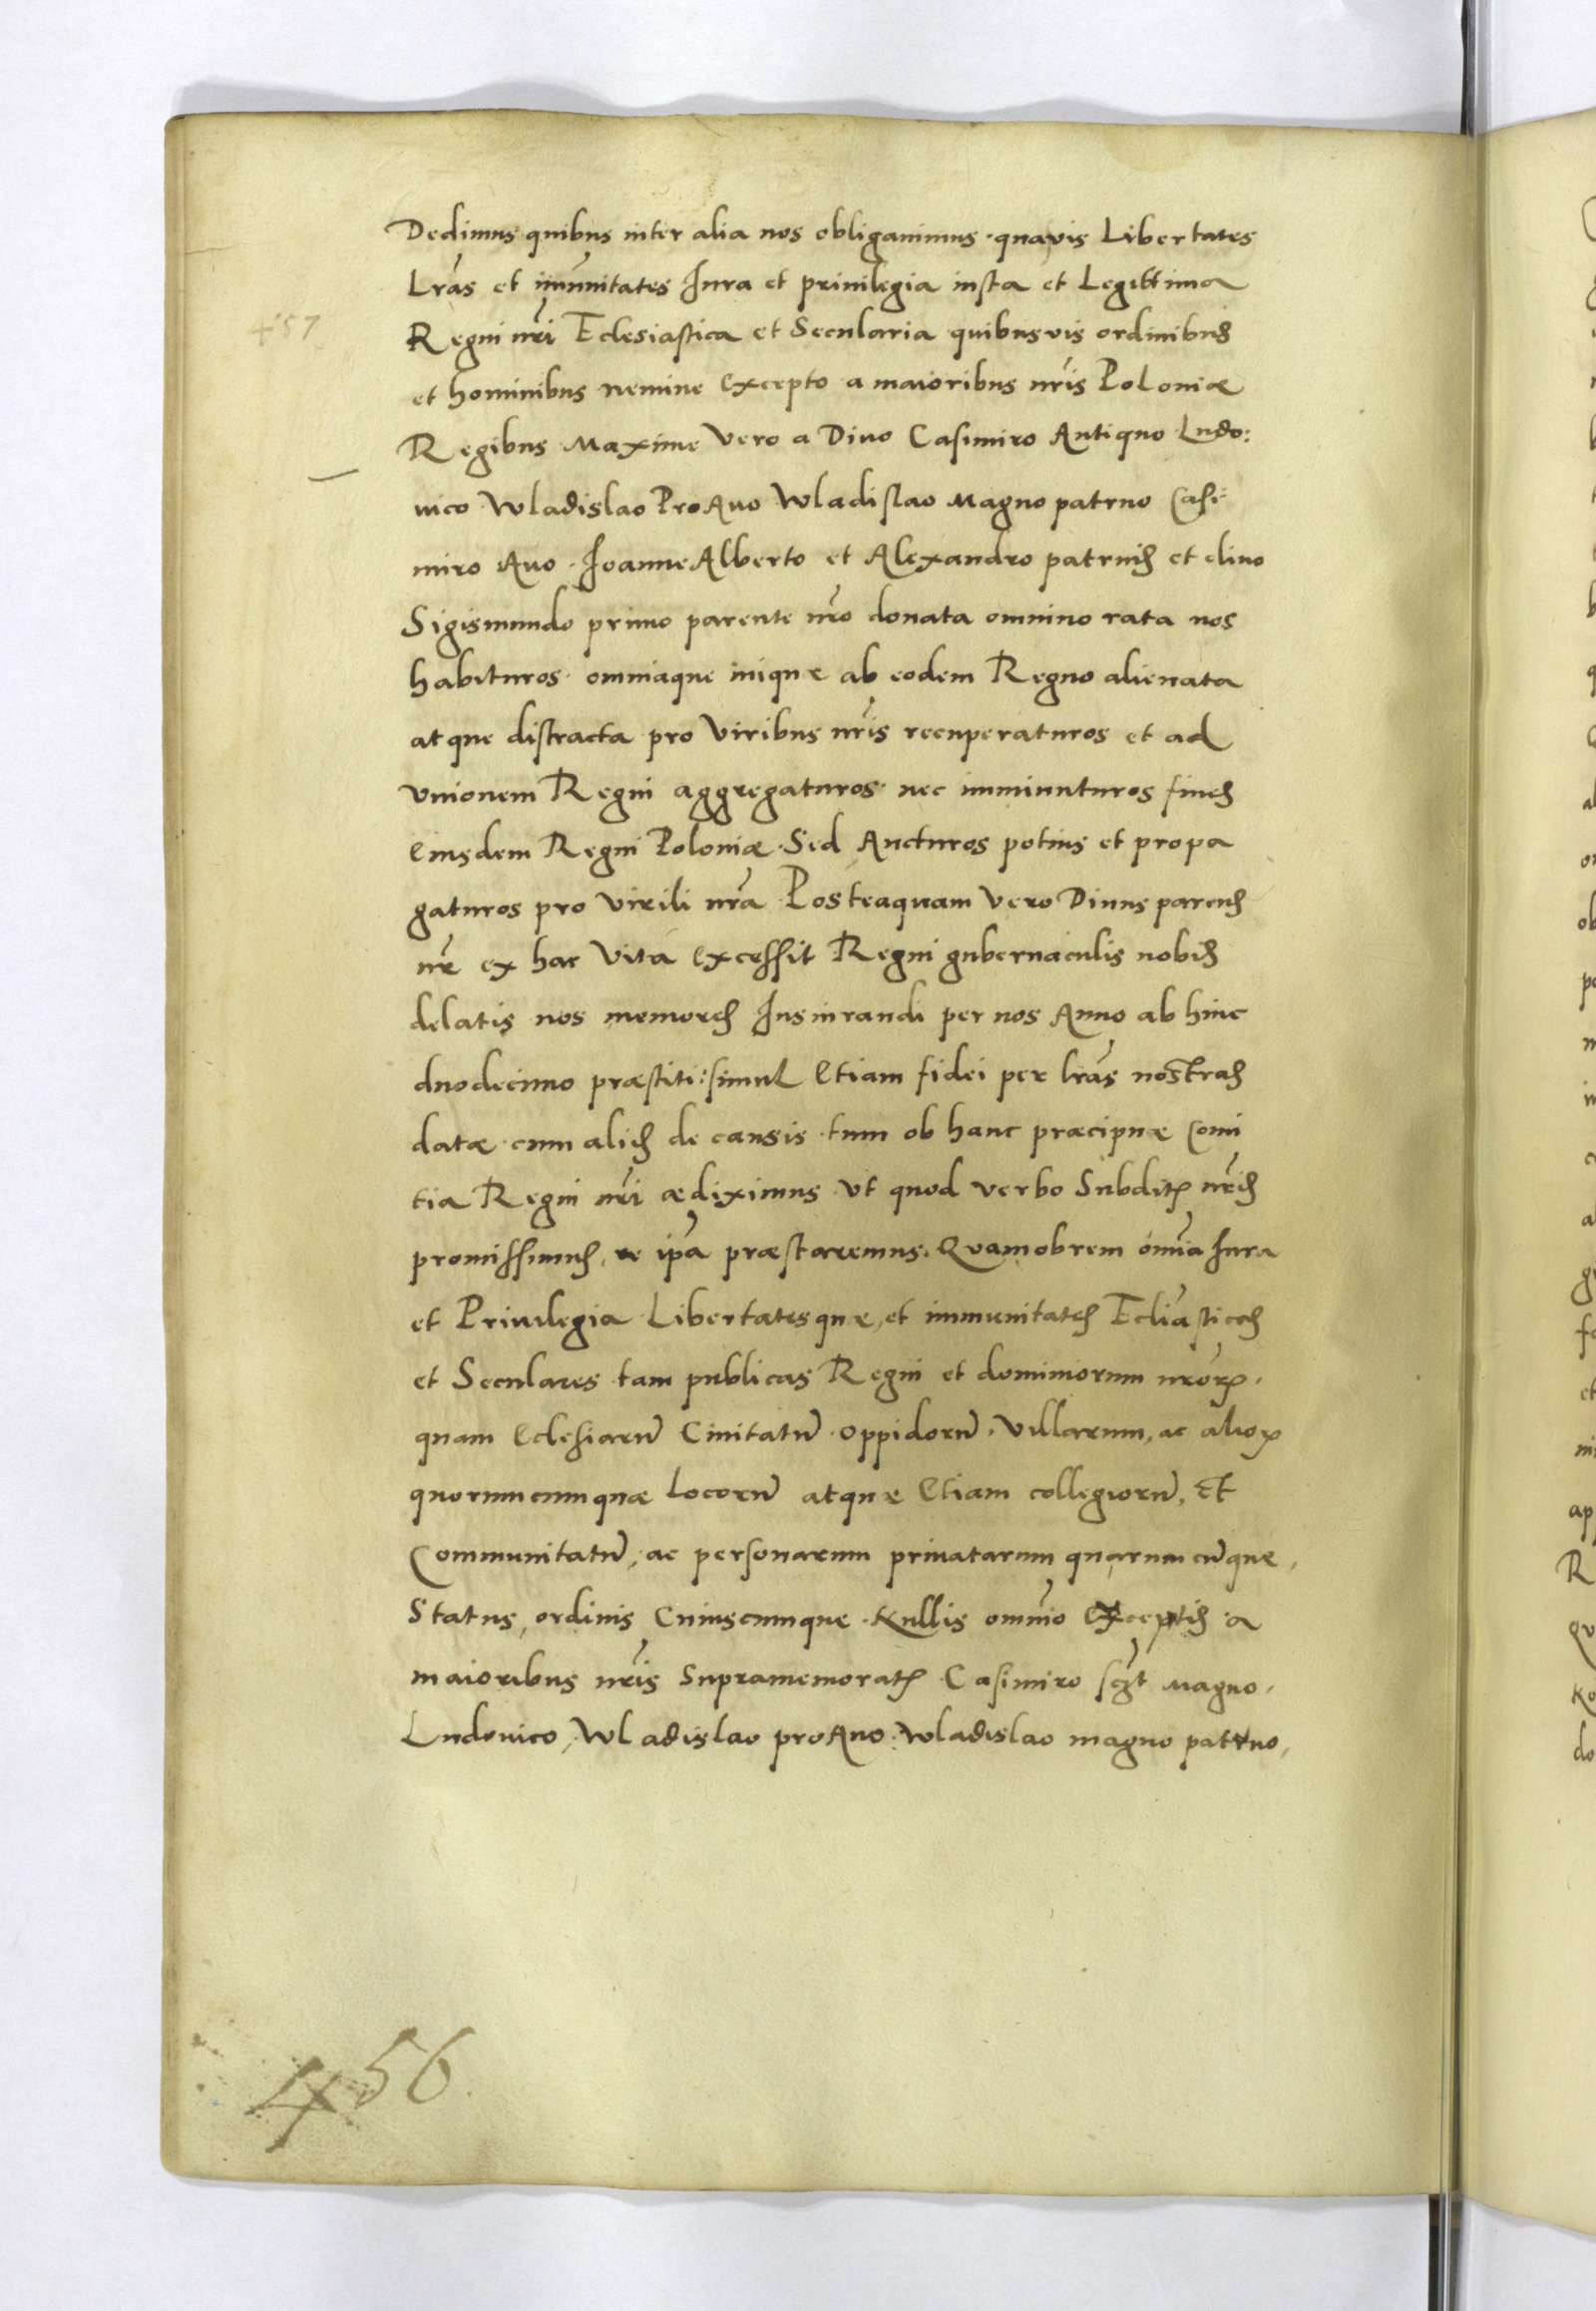 Dedimus quibus inter alia nos obligauimus · quavis Libertates
Lrãs et im̃unitates Iura et priuilegia iusta et Legittima
457 Regni nr̃i Eclesiastica et Secularia quibusvis ordinibus
et hominibus nemine excepto a maioribus nr̃is Poloniæ
Regibus Maxime Vero a Diuo Casimiro Antiquo Ludo:
uico Wladislao ProAuo Wladislao Magno patruo Casi
miro Auo · Ioanne Alberto et Alexandro patruis et diuo
Sigismundo primo parente nr̃o donata omnino rata nos
habituros · omniaque inique ab eodem Regno alienata
atque distracta pro Viribus nr̃is recuperaturos et ad
vnionem Regni aggregaturos · nec imminuturos fines
Eiusdem Regni Poloniæ · Sed Aucturos potius et propa
gaturos pro virili nrã · Posteaquam Vero Diuus parens
nr̃ ex hac Vita excessit Regni gubernaculis nobis
delatis nos memores Iusiurandi per nos Anno ab hinc
duodecimo præstiti: simul Etiam fidei per lrãs nostras
datæ · cum aliis de causis · tum ob hanc præcipue Comi
tia Regni nr̃i ædiximus · Vt quod verbo Subditꝭ nr̃is
promissimus, re ip̃a præstaremus. Quamobrem om̃ia Iura
et Priuilegia · Libertatesque, et immunitates Ecliãsticas
et Seculares tam publicas Regni et dominiorum nrõrꝝ ·
quam Eclesiarũ Ciuitatũ · oppidorũ · Villarum, ac alioꝝ
quorumcumquæ Locorũ atque Etiam collegiorũ, Et
Communitatũ, ac personarum priuatarum quarumcũque,
Status, ordinis Cuiuscumque · Nullis omnĩo Exceptis · a
maioribus nr̃is Supramemoratꝭ · Casimiro scz̃t Magno,
Ludouico, Wladislao proAuo · Wladislao magno patruo,
456